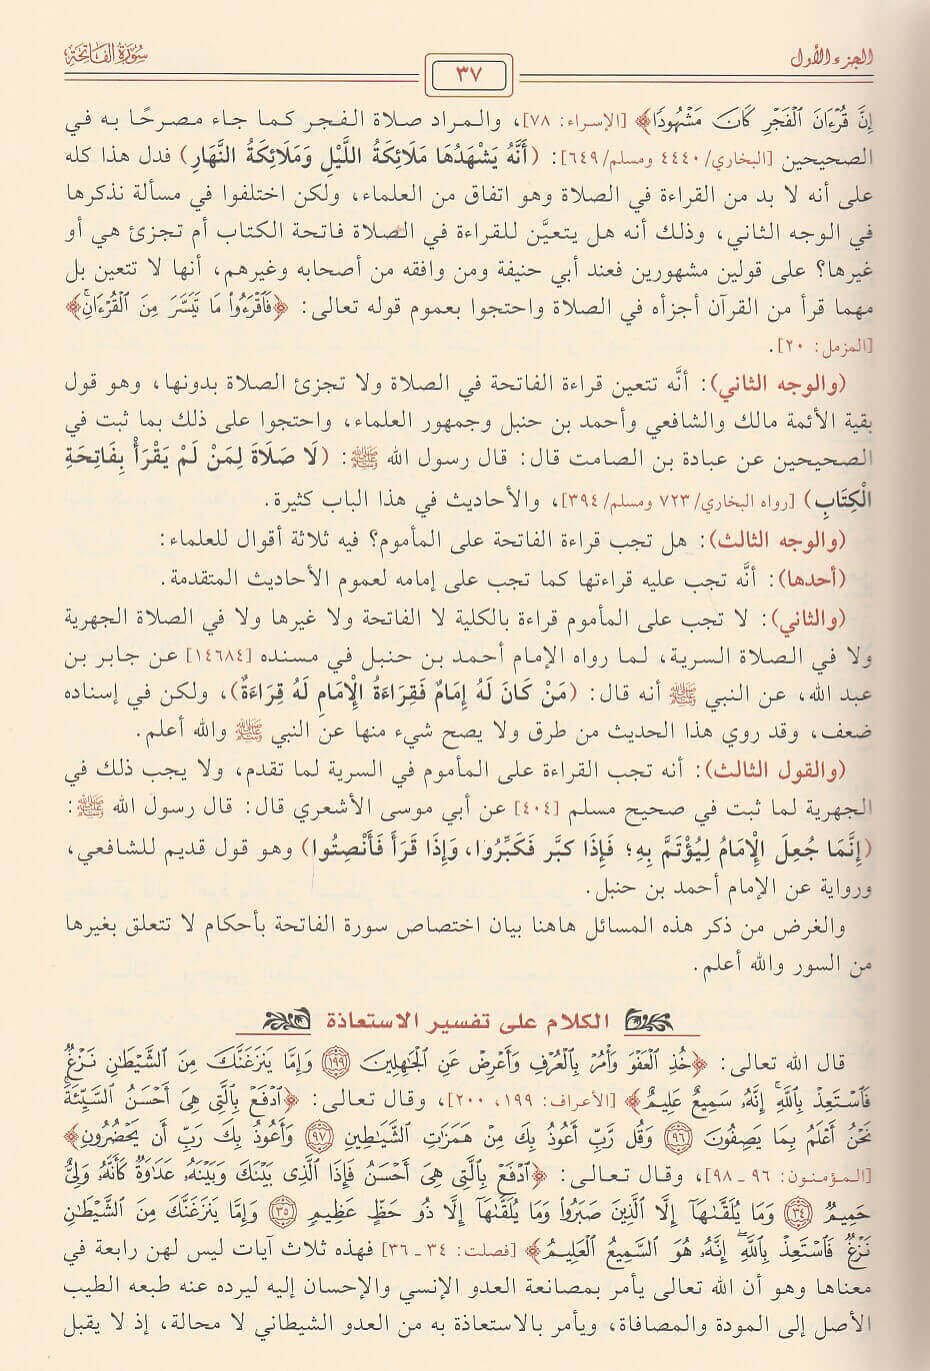 الجزء الأول
٣٧
سورة الفاتحة
إِنَّ قُرْءَانَ ٱلْفَجْرِ كَانَ مَشْهُودًا﴾ [الإسراء: ٧٨]، والمراد صلاة الفجر كما جاء مصرحًا به في
الصحيحين [البخاري/ ٤٤٤٠ ومسلم/ ٦٤٩]: (أَنَّهُ يَشْهَدُهَا مَلَائِكَةُ اللَّيْلِ وَمَلَائِكَةُ النَّهَارِ) فدل هذا كله
على أنه لا بد من القراءة في الصلاة وهو اتفاق من العلماء، ولكن اختلفوا في مسألة نذكرها
في الوجه الثاني، وذلك أنه هل يتعيَّن للقراءة في الصلاة فاتحة الكتاب أم تجزئ هي أو
غيرها؟ على قولين مشهورين فعند أبي حنيفة ومن وافقه من أصحابه وغيرهم، أنها لا تتعين بل
مهما قرأ من القرآن أجزأه في الصلاة واحتجوا بعموم قوله تعالى: ﴿فَٱقْرَءُوا۟ مَا تَيَسَّرَ مِنَ ٱلْقُرْءَانِ﴾
[المزمل: ٢٠].
(والوجه الثاني): أنَّه تتعين قراءة الفاتحة في الصلاة ولا تجزئ الصلاة بدونها، وهو قول
بقية الأئمة مالك والشافعي وأحمد بن حنبل وجمهور العلماء، واحتجوا على ذلك بما ثبت في
الصحيحين عن عبادة بن الصامت قال: قال رسول الله ﷺ: (لَا صَلَاةَ لِمَنْ لَمْ يَقْرَأْ بِفَاتِحَةِ
الْكِتَابِ) [رواه البخاري/ ٧٢٣ ومسلم/ ٣٩٤]، والأحاديث في هذا الباب كثيرة.
(والوجه الثالث): هل تجب قراءة الفاتحة على المأموم؟ فيه ثلاثة أقوال للعلماء:
(أحدها): أنَّه تجب عليه قراءتها كما تجب على إمامه لعموم الأحاديث المتقدمة.
(والثاني): لا تجب على المأموم قراءة بالكلية لا الفاتحة ولا غيرها ولا في الصلاة الجهرية
ولا في الصلاة السرية، لما رواه الإمام أحمد بن حنبل في مسنده [١٤٦٨٤] عن جابر بن
عبد الله، عن النبي ﷺ أنه قال: (مَنْ كَانَ لَهُ إِمَامٌ فَقِرَاءَةُ الْإِمَامِ لَهُ قِرَاءَةٌ)، ولكن في إسناده
ضعف، وقد روي هذا الحديث من طرق ولا يصح شيء منها عن النبي ﷺ والله أعلم.
(والقول الثالث): أنه تجب القراءة على المأموم في السرية لما تقدم، ولا يجب ذلك في
الجهرية لما ثبت في صحيح مسلم [٤٠٤] عن أبي موسى الأشعري قال: قال رسول الله ﷺ:
(إِنَّمَا جُعِلَ الْإِمَامُ لِيُؤْتَمَّ بِهِ؛ فَإِذَا كبَّر فَكَبِّرُوا، وَإِذَا قَرَأَ فَأَنْصِتُوا) وهو قول قديم للشافعي،
ورواية عن الإمام أحمد بن حنبل.
والغرض من ذكر هذه المسائل هاهنا بيان اختصاص سورة الفاتحة بأحكام لا تتعلق بغيرها
من السور والله أعلم.
الكلام على تفسير الاستعاذة
قال الله تعالى: ﴿خُذِ ٱلْعَفْوَ وَأْمُرْ بِٱلْعُرْفِ وَأَعْرِضْ عَنِ ٱلْجَٰهِلِينَ ١٩٩ وَإِمَّا يَنزَغَنَّكَ مِنَ ٱلشَّيْطَٰنِ نَزْغٌ
فَٱسْتَعِذْ بِٱللَّهِ إِنَّهُۥ سَمِيعٌ عَلِيمٌ﴾ [الأعراف: ١٩٩، ٢٠٠]، وقال تعالى: ﴿ٱدْفَعْ بِٱلَّتِى هِىَ أَحْسَنُ ٱلسَّيِّئَةَ
نَحْنُ أَعْلَمُ بِمَا يَصِفُونَ ٩٦ وَقُل رَّبِّ أَعُوذُ بِكَ مِنْ هَمَزَٰتِ ٱلشَّيَٰطِينِ ٩٧ وَأَعُوذُ بِكَ رَبِّ أَن يَحْضُرُونِ﴾
[المؤمنون: ٩٦ - ٩٨]، وقال تعالى: ﴿ٱدْفَعْ بِٱلَّتِى هِىَ أَحْسَنُ فَإِذَا ٱلَّذِى بَيْنَكَ وَبَيْنَهُۥ عَدَٰوَةٌ كَأَنَّهُۥ وَلِىٌّ
حَمِيمٌ ٣٤ وَمَا يُلَقَّىٰهَآ إِلَّا ٱلَّذِينَ صَبَرُوا۟ وَمَا يُلَقَّىٰهَآ إِلَّا ذُو حَظٍّ عَظِيمٍ ٣٥ وَإِمَّا يَنزَغَنَّكَ مِنَ ٱلشَّيْطَٰنِ
نَزْغٌ فَٱسْتَعِذْ بِٱللَّهِ إِنَّهُۥ هُوَ ٱلسَّمِيعُ ٱلْعَلِيمُ﴾ [فصلت: ٣٤ - ٣٦] فهذه ثلاث آيات ليس لهن رابعة في
معناها وهو أن الله تعالى يأمر بمصانعة العدو الإنسي والإحسان إليه ليرده عنه طبعه الطيب
الأصل إلى المودة والمصافاة، ويأمر بالاستعاذة به من العدو الشيطاني لا محالة، إذ لا يقبل